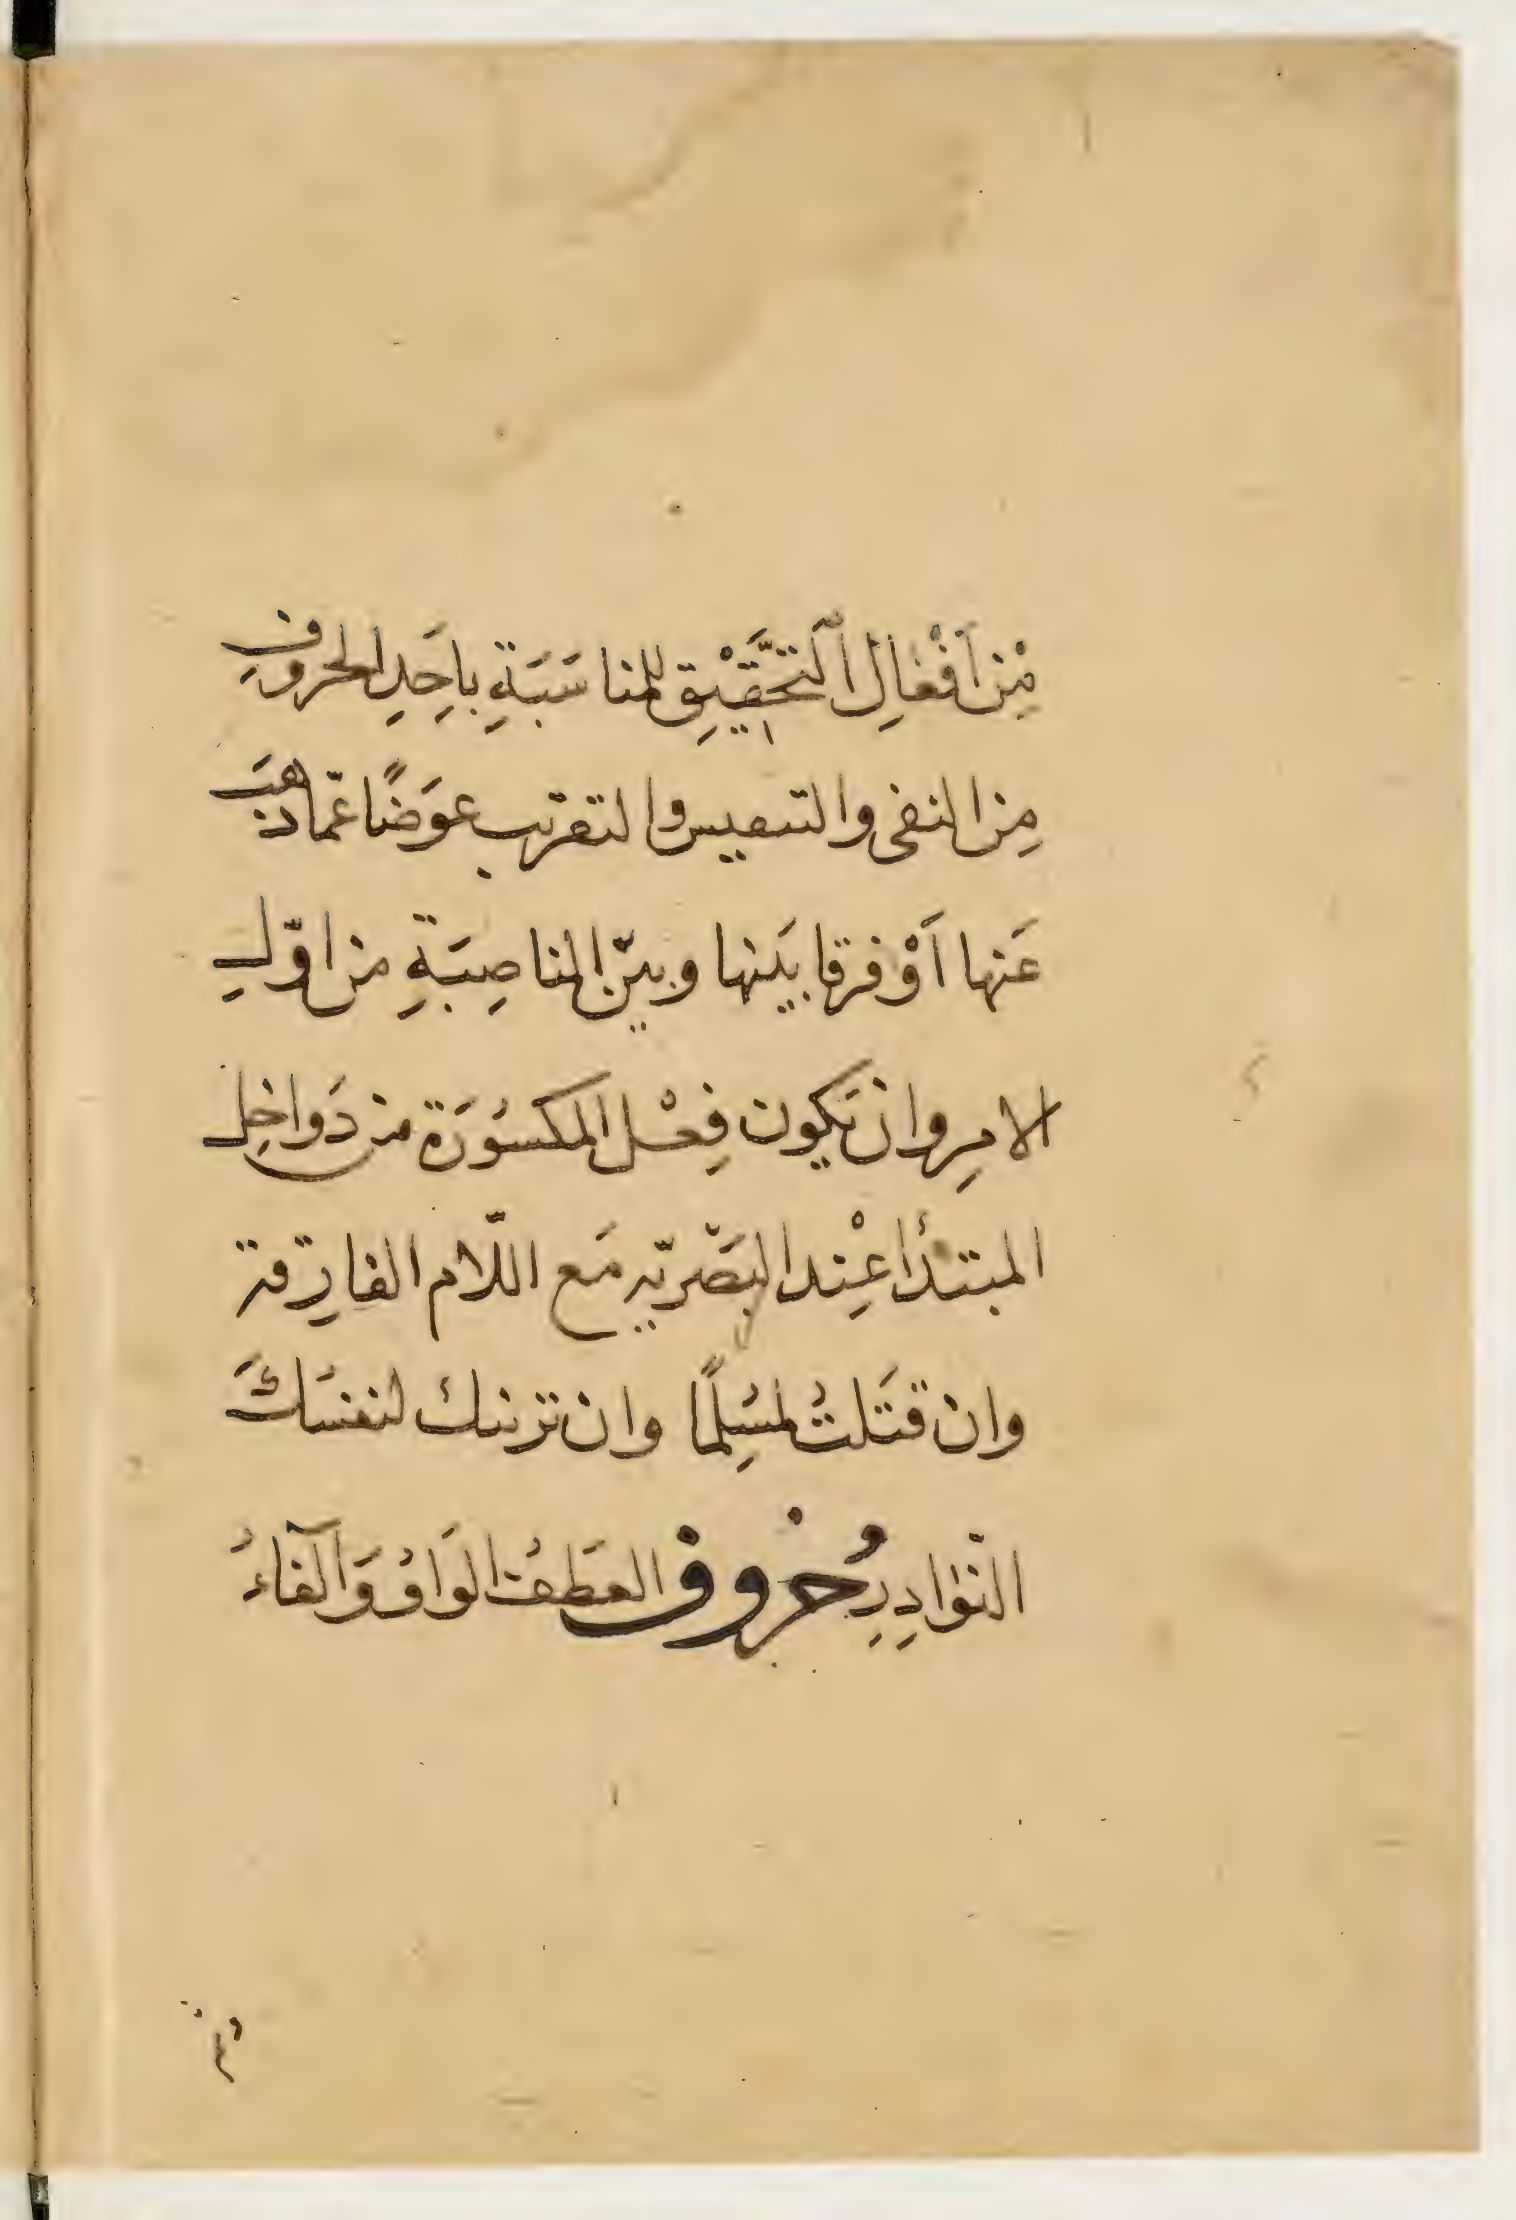 مِنْ اَفْعَالِ التَّحْقِيْقِ للمناسَبَةِ باِحَدِ الحروفِ
مِن النفى والتنفيس والتقريب عوَضًا عمّا ذهَبَ
عَنها اَوْ فرقا بيَنها وبيْن المناصِبَةِ من اوّلِ
الامرِ وان يَكون فِعْل المكسوُرَة من دَواخِل
المبتدأ عِنْد البَصْريّه مَع اللّام الفارِقة
وان قتَلتُ لمسُلِمًا وان تزينكَ لنفسُكَ
النّوادِرِ حُرْوف العَطفُ الوَاوُ وَالفاءُ